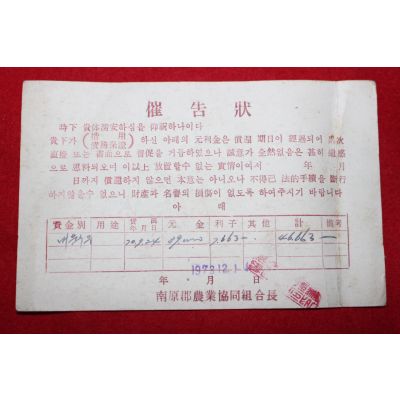 催告狀
時下 貴体淸安하심을 仰祝하나이다
貴下가 (借用 債務保證) 하신 아래의 元利金은 償還 期日이 經過되어 屢次
直接 또는 書面으로 督促을 기하였으나 誠意가 全然없음은 甚히 遺憾
으로 思料되오며 이以上 放置할수 없는 實情이여서 年 月
日까지 償還하지 않으면 本意는 아니오나 不得已 法的手續을 斷行
하지않을수 없으니 財產과 名譽의 損傷이 없도록 하여주시기 바랍니다
아 래
資金別 用途 貸出年月日 元金 利子 其他 計 備考
70.9.24 39,000 7,663- 46,663-
1973.12.1
年 月 日
南原郡農業協同組合長